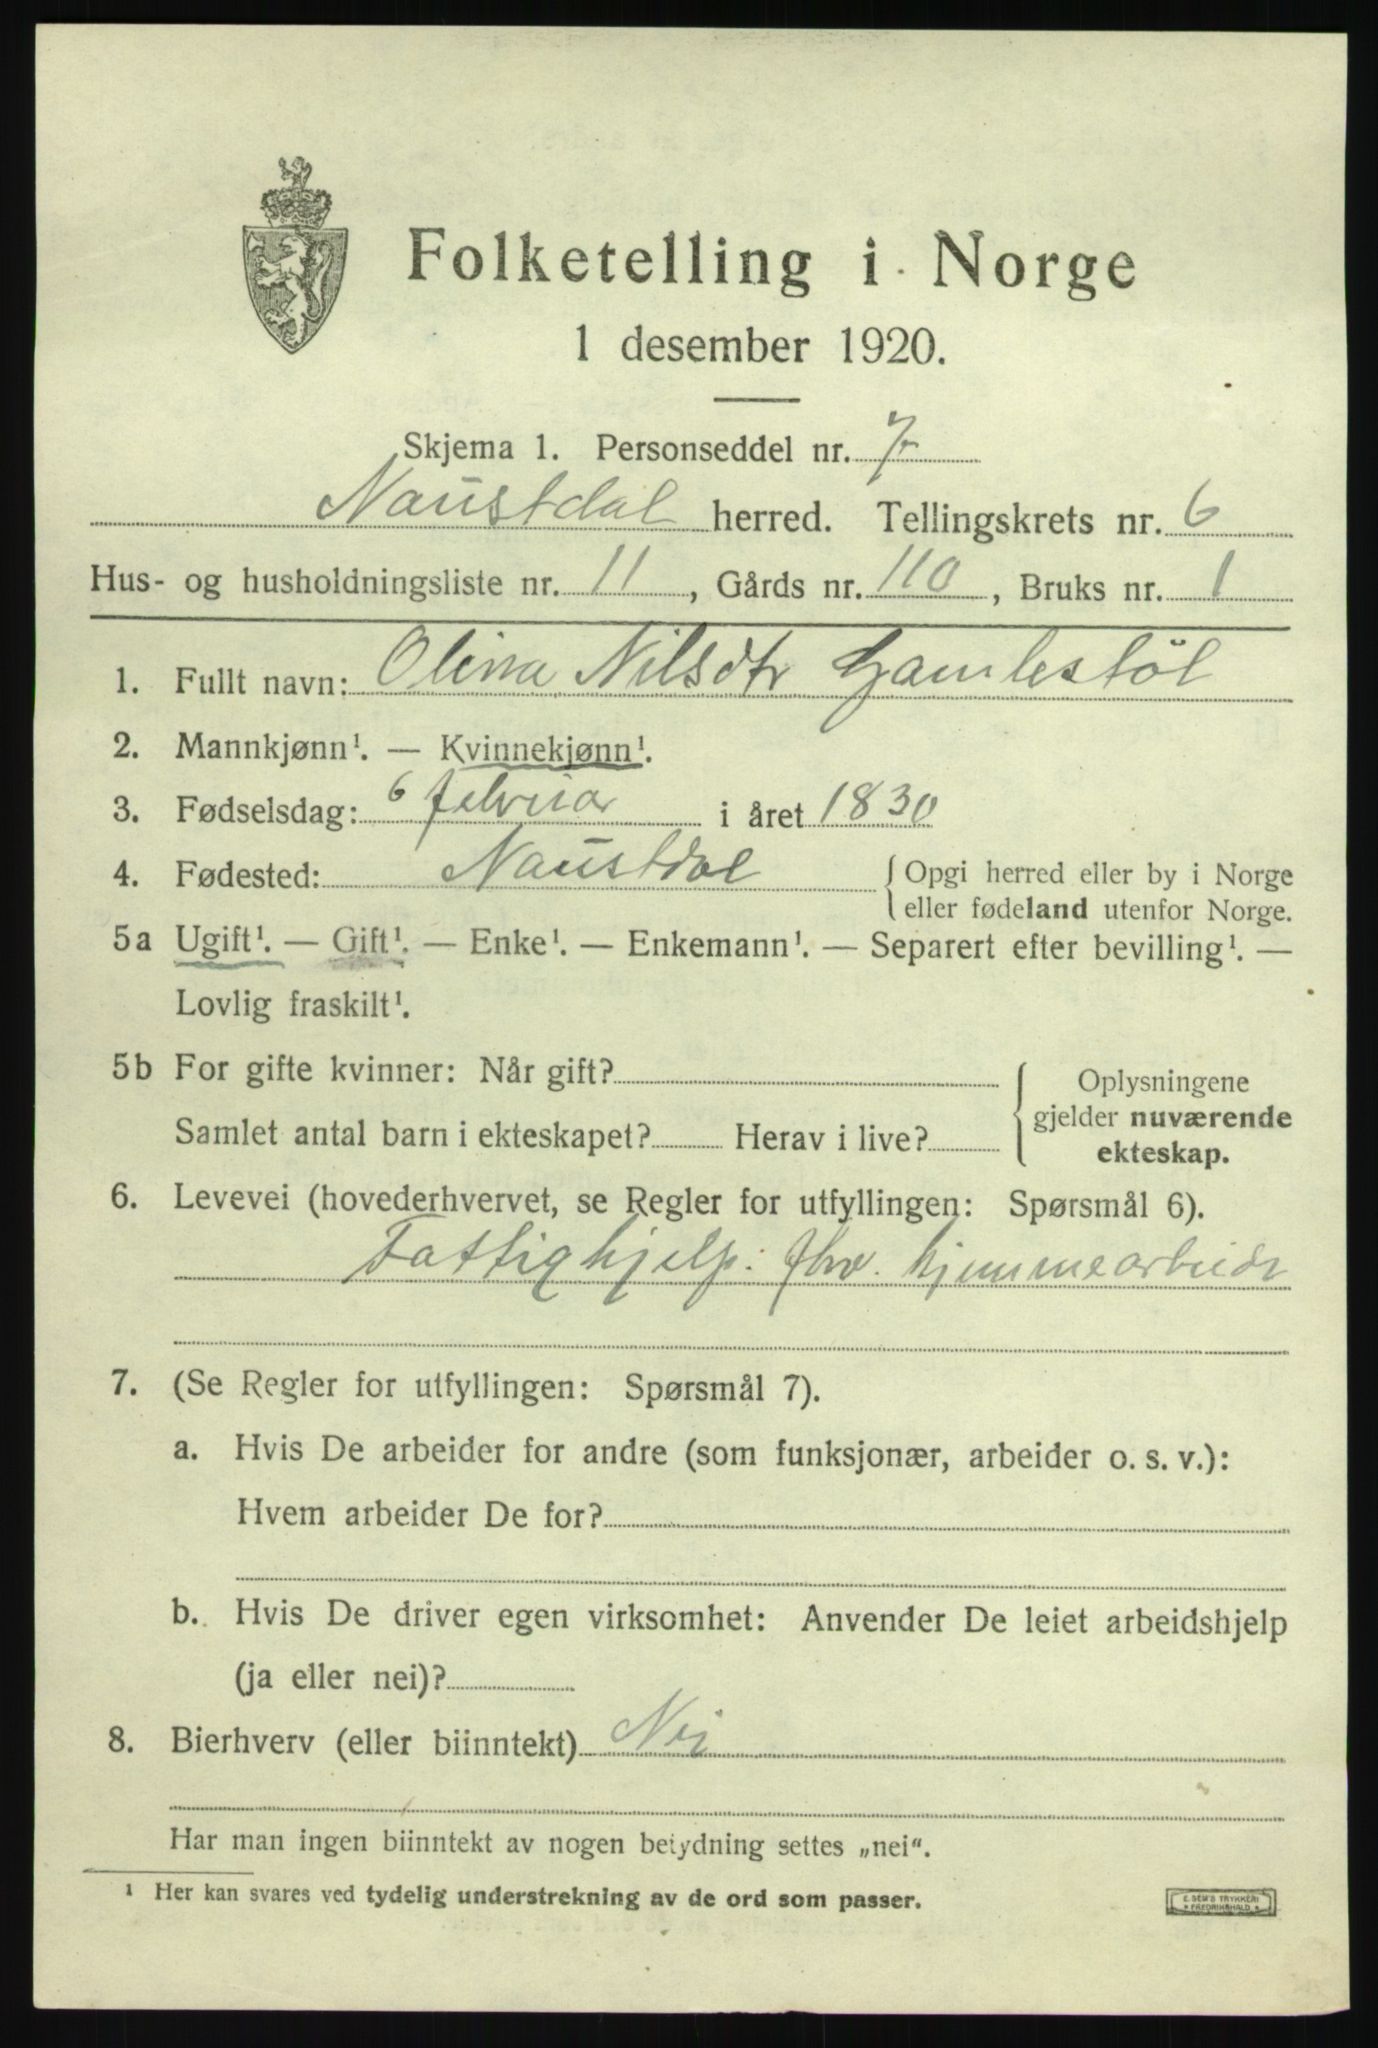 Folketelling i Norge
1 desember 1920.
Skjema 1. Personseddel nr. 7
Naustdal herred. Tellingskrets nr. 6
Hus- og husholdningsliste nr. 11, Gårds nr. 110, Bruks nr. 1
1. Fullt navn: Olina Nilsdtr Gamlestöl
2. Mannkjønn¹. — Kvinnekjønn¹.
3. Fødselsdag: 6 februar i året 1830
4. Fødested: Naustdal { Opgi herred eller by i Norge
eller fødeland utenfor Norge.
5a Ugift¹. — Gift¹. — Enke¹. — Enkemann¹. — Separert efter bevilling¹. —
Lovlig fraskilt¹.
5b For gifte kvinner: Når gift?
Samlet antal barn i ekteskapet? Herav i live?
{ Oplysningene
gjelder nuværende
ekteskap.
6. Levevei (hovederhvervet, se Regler for utfyllingen: Spørsmål 6).
Fattighjelp. fhv. hjemmearbeide
7. (Se Regler for utfyllingen: Spørsmål 7).
a. Hvis De arbeider for andre (som funksjonær, arbeider o. s. v.):
Hvem arbeider De for?
b. Hvis De driver egen virksomhet: Anvender De leiet arbeidshjelp
(ja eller nei)?
8. Bierhverv (eller biinntekt) Nei
Har man ingen biinntekt av nogen betydning settes „nei“.
¹ Her kan svares ved tydelig understrekning av de ord som passer.
E. SEM'S TRYKKERI
* FREDRIKSHALD *